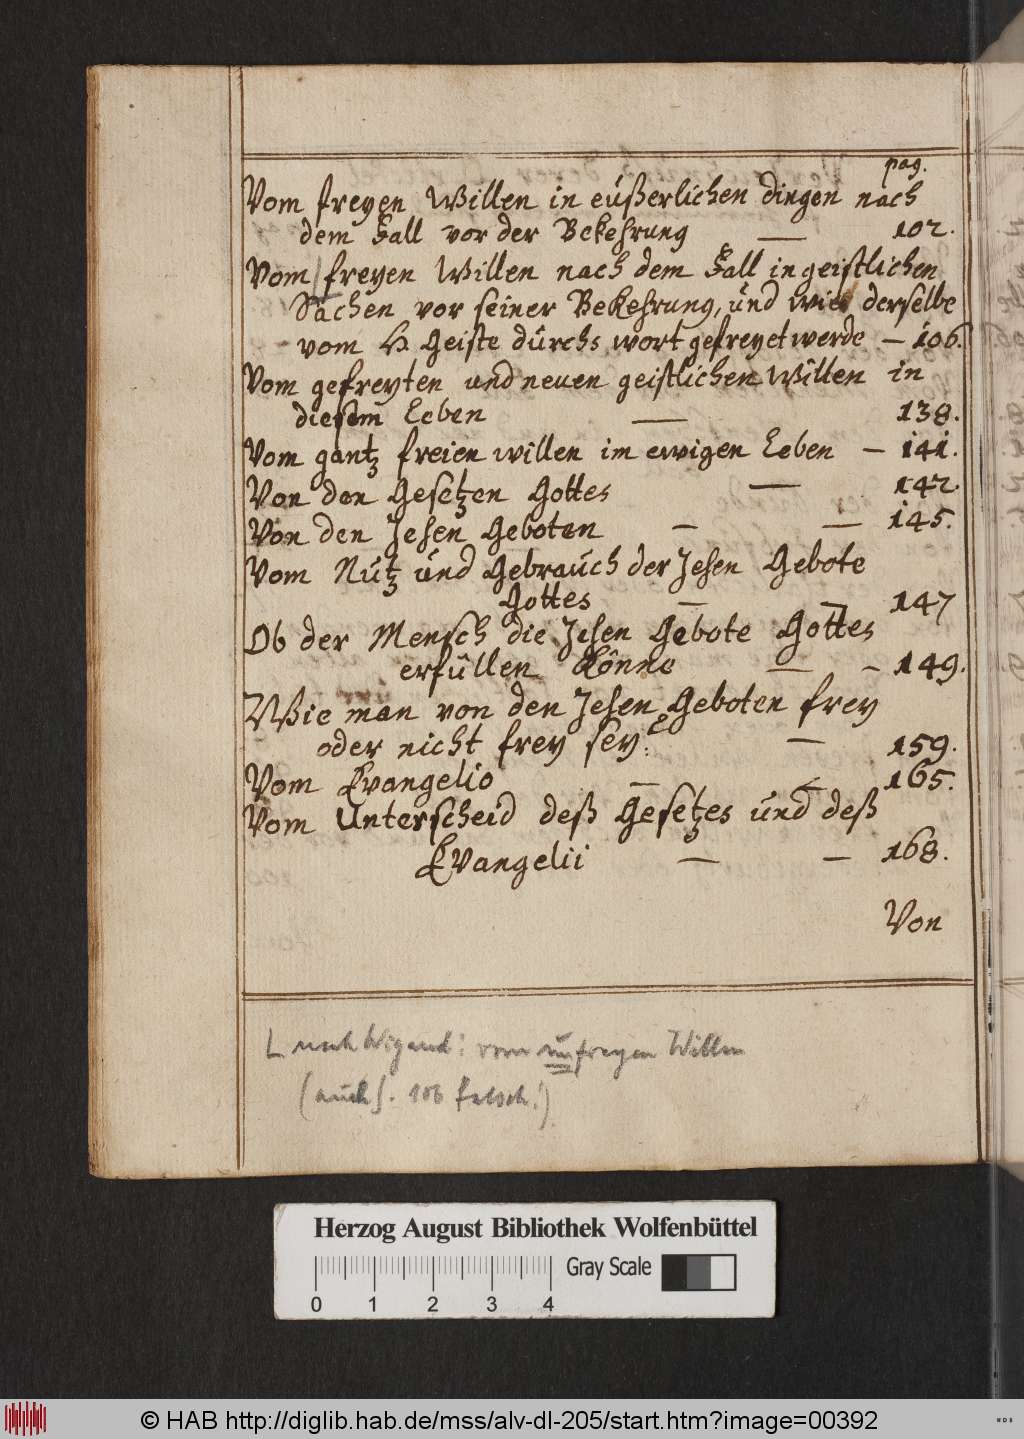 pag.
Vom freyen Willen in eüßerlichen dingen nach
dem Fall vor der Bekehrung — 102.
Vom freyen Willen nach dem Fall in geistlichen
Sachen vor seiner Bekehrung, und wie derselbe
vom H. Geiste dürchs wort gefreyet werde — 106.
Vom gefreyten und neuen geistlichen Willen in
diesem Leben — 138.
Vom gantz freien willen im ewigen Leben — 141.
Von den Gesetzen Gottes — 142.
Von den Zehen Geboten — — 145.
Vom Nutz und Gebrauch der Zehen Gebote
Gottes — — 147
Ob der Mensch die Zehen Gebote Gottes
erfüllen könne — — 149.
Wie man von den Zehen Geboten frey
oder nicht frey sey? — 159.
Vom Evangelio — — 165.
Vom Unterscheid deß Gesetzes und deß
Evangelii — — 168.
Von
L nach Wigand: vom unfreyen Willen
(auch S. 106 falsch!)
Herzog August Bibliothek Wolfenbüttel
Gray Scale
0 1 2 3 4
© HAB http://diglib.hab.de/mss/alv-dl-205/start.htm?image=00392